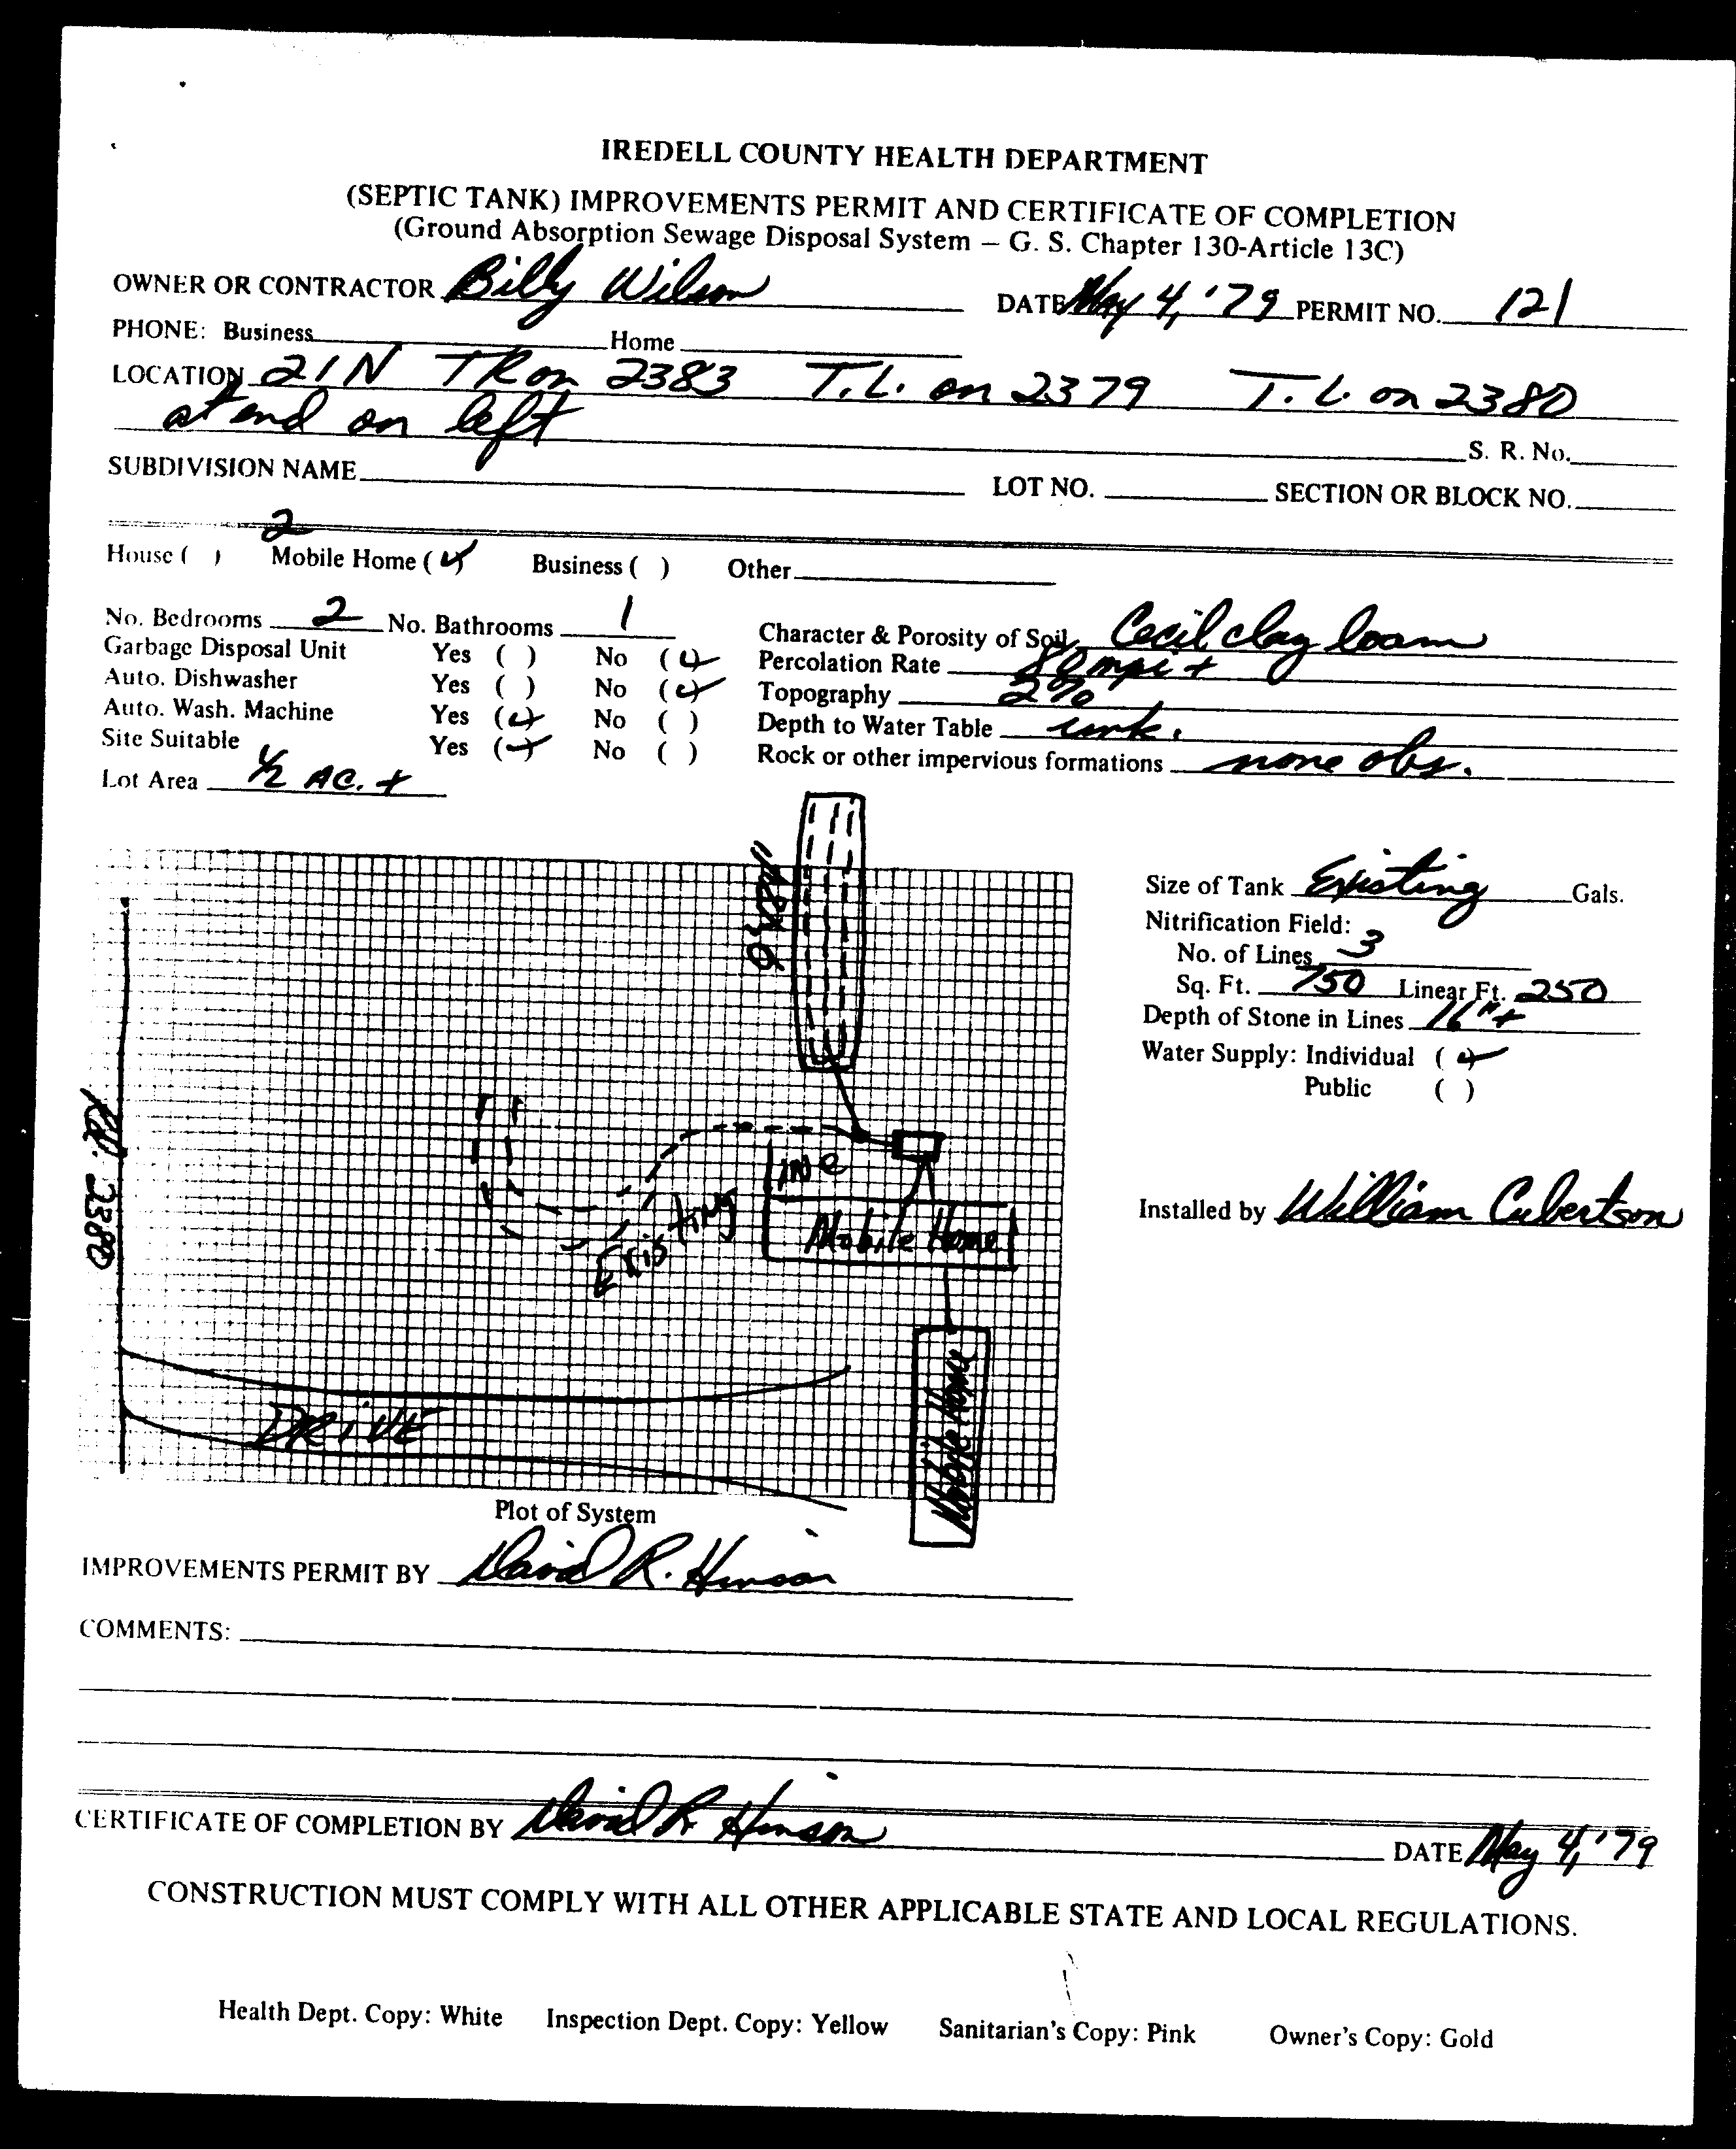 IREDELL COUNTY HEALTH DEPARTMENT
(SEPTIC TANK) IMPROVEMENTS PERMIT AND CERTIFICATE OF COMPLETION
(Ground Absorption Sewage Disposal System – G. S. Chapter 130-Article 13C)
OWNER OR CONTRACTOR Billy Wilson DATE May 4, '79 PERMIT NO. 121
PHONE: Business Home
LOCATION 21N TR on 2383 T.L. on 2379 T.L. on 2380
at end on left
S. R. No.
SUBDIVISION NAME LOT NO. SECTION OR BLOCK NO.
2
House ( ) Mobile Home (✓) Business ( ) Other
No. Bedrooms 2 No. Bathrooms 1 Character & Porosity of Soil Cecil clay loam
Garbage Disposal Unit Yes ( ) No (✓) Percolation Rate 80 mpi +
Auto. Dishwasher Yes ( ) No (✓) Topography 2%
Auto. Wash. Machine Yes (✓) No ( ) Depth to Water Table unk.
Site Suitable Yes (✓) No ( ) Rock or other impervious formations none obs.
Lot Area 1/2 AC. +
Size of Tank Existing Gals.
Nitrification Field:
No. of Lines 3
Sq. Ft. 750 Linear Ft. 250
Depth of Stone in Lines 16"+
Water Supply: Individual (✓)
Public ( )
Rd. 2380
Existing Line
Mobile Home
Installed by William Culbertson
Mobile Home
DRIVE
Plot of System
IMPROVEMENTS PERMIT BY David R. Hinson
COMMENTS:
CERTIFICATE OF COMPLETION BY David R Hinson DATE May 4, '79
CONSTRUCTION MUST COMPLY WITH ALL OTHER APPLICABLE STATE AND LOCAL REGULATIONS.
Health Dept. Copy: White Inspection Dept. Copy: Yellow Sanitarian's Copy: Pink Owner's Copy: Gold